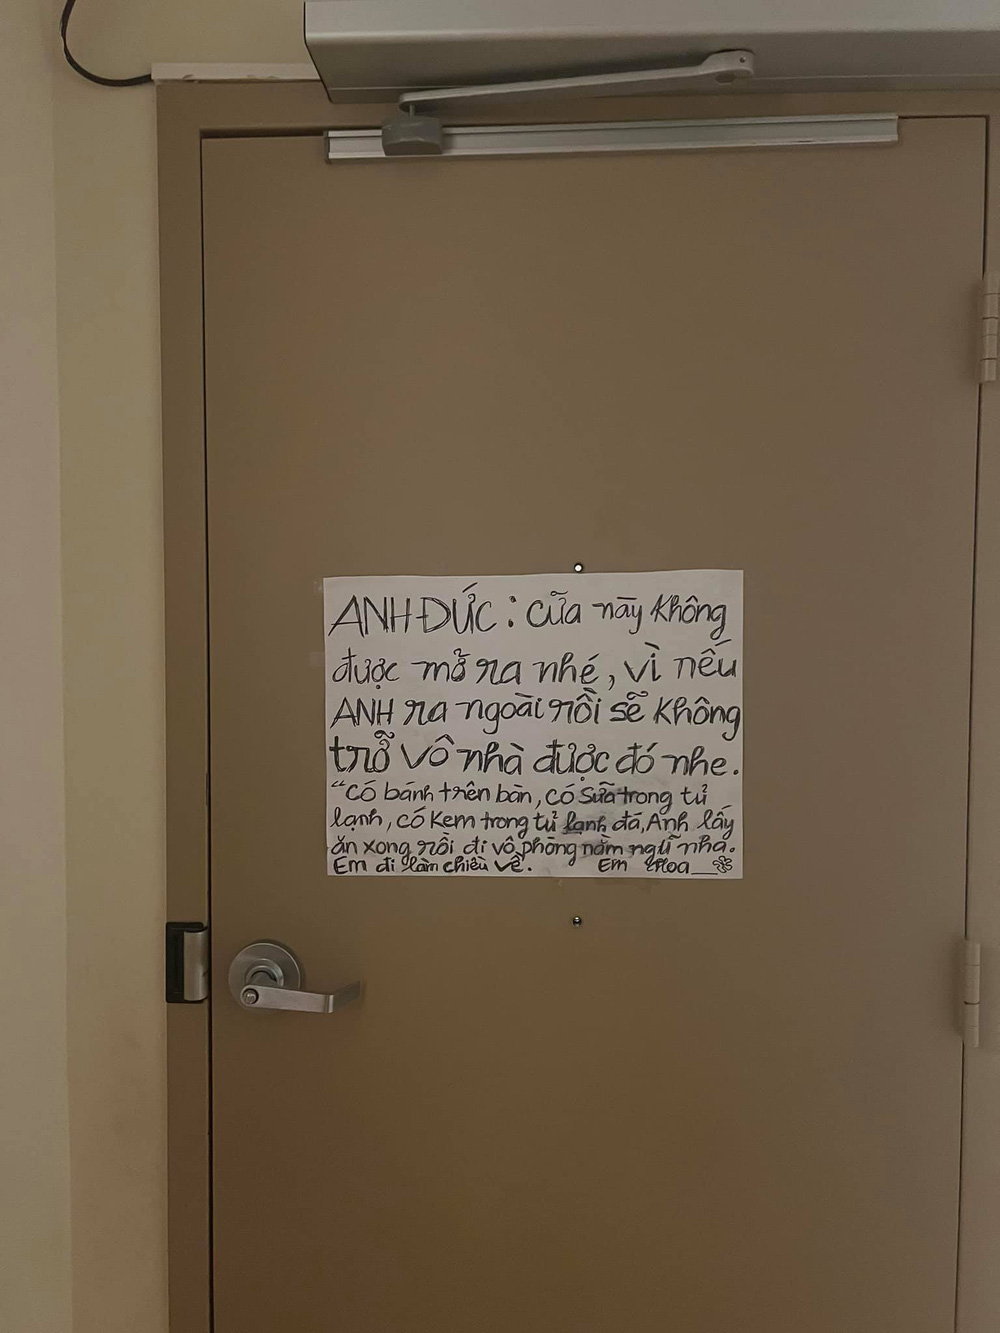 ANH ĐỨC : cữa này không
được mở ra nhé, vì nếu
ANH ra ngoài rồi sẽ không
trỡ vô nhà được đó nhe.
"Có bánh trên bàn, có Sữa trong tủ
lạnh, có Kem trong tủ lạnh đá, Anh lấy
ăn xong rồi đi vô phòng nằm ngũ nha.
Em đi làm chiều về. Em Hoa